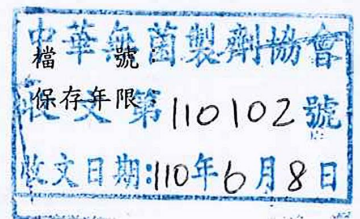 中華無菌製劑協會
檔 號
保存年限
收文第110102號
收文日期:110年6月8日